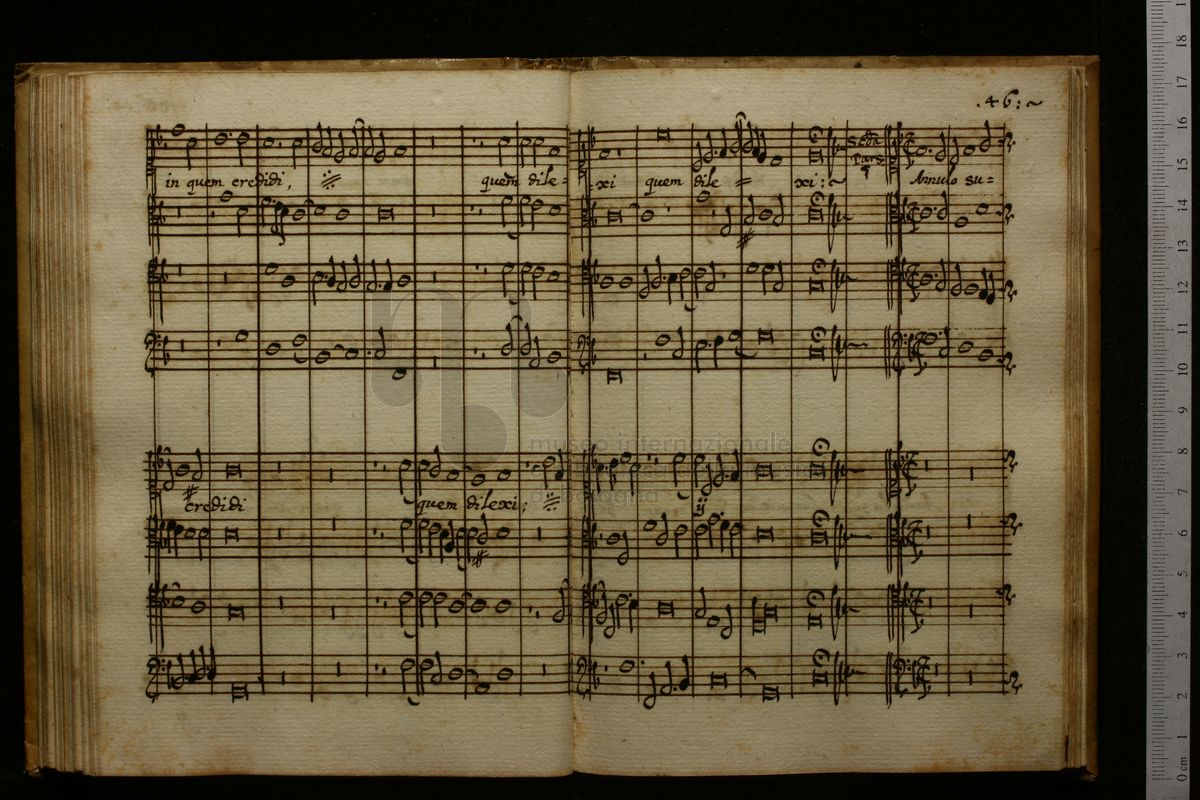 .46:~
in quem credidi, quem dile= xi quem dile = xi:~
Secda
Pars
Annulo su=
museo internazionale
credidi quem dilexi;
di bologna
ij:
18
17
16
15
14
13
12
11
10
9
8
7
6
5
4
3
2
1
0 cm